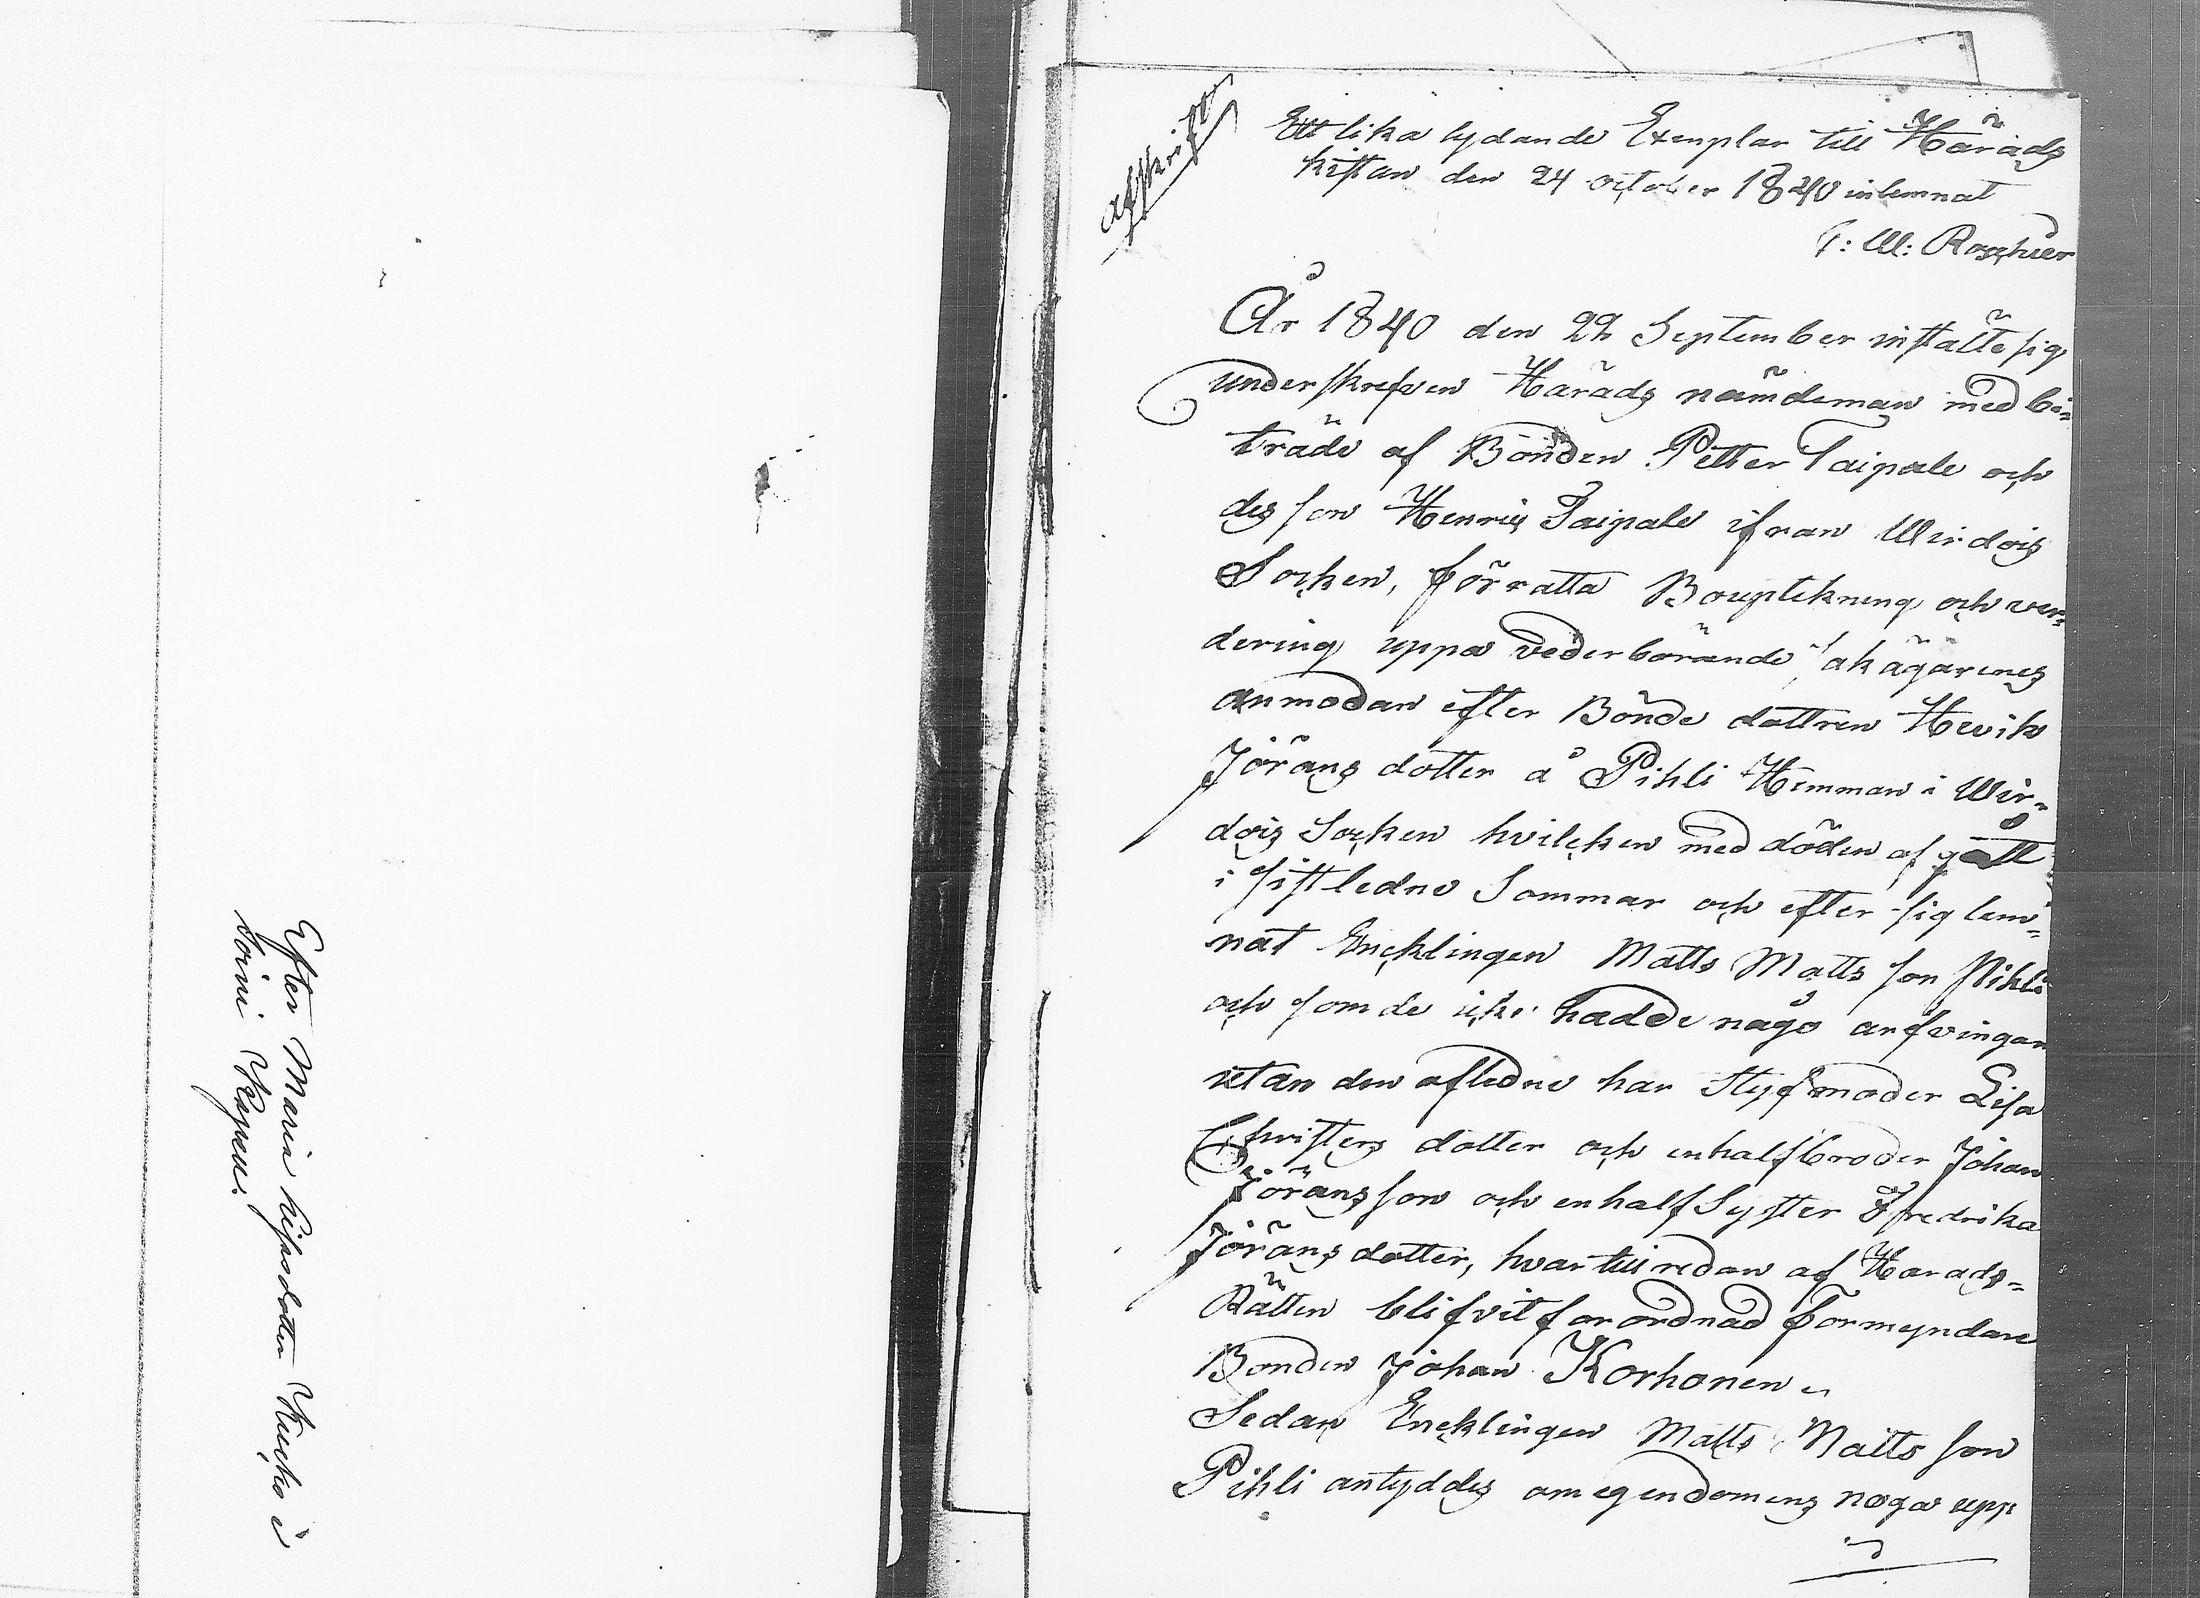 Efter Maria Lisasdotter Kucko i
Soini Kapell.
Afskrift
Ett lika lydande Exemplar till Härads
kistan den 24 october 1840 inlemnat
F: W: Roschier
År 1840 den 22 September instälte sig
underskrefven Härads nämdeman med bi-
träde af Bonden Petter Taipale och
des son Henric Taipale ifran Wirdois
Socken, förratta Bouptekning och ver-
dering uppa vederbörande sak ägarenes
anmodan efter Bonde dottren Hevik
Jörans dotter å Pihli Hemman i Wir-
dois Socken hvilcken med döden af gått
i sistledne Sommar och efter sig lem-
nat Encklingen Matts Matts son Pihli
och som de icke hadde någo arfvingar
utan den afledne har styfmoder Lisa
Christers dotter och en half broder Johan
Jöransson och en half Syster Fredrika
Jörans dotter, hvartill redan af Harads-
Rätten blifvit forordnad Formyndare
Bonden Johan Korhonen
Sedan Encklingen Matts Matts son
Pihli antyddes om egendomens noga upp